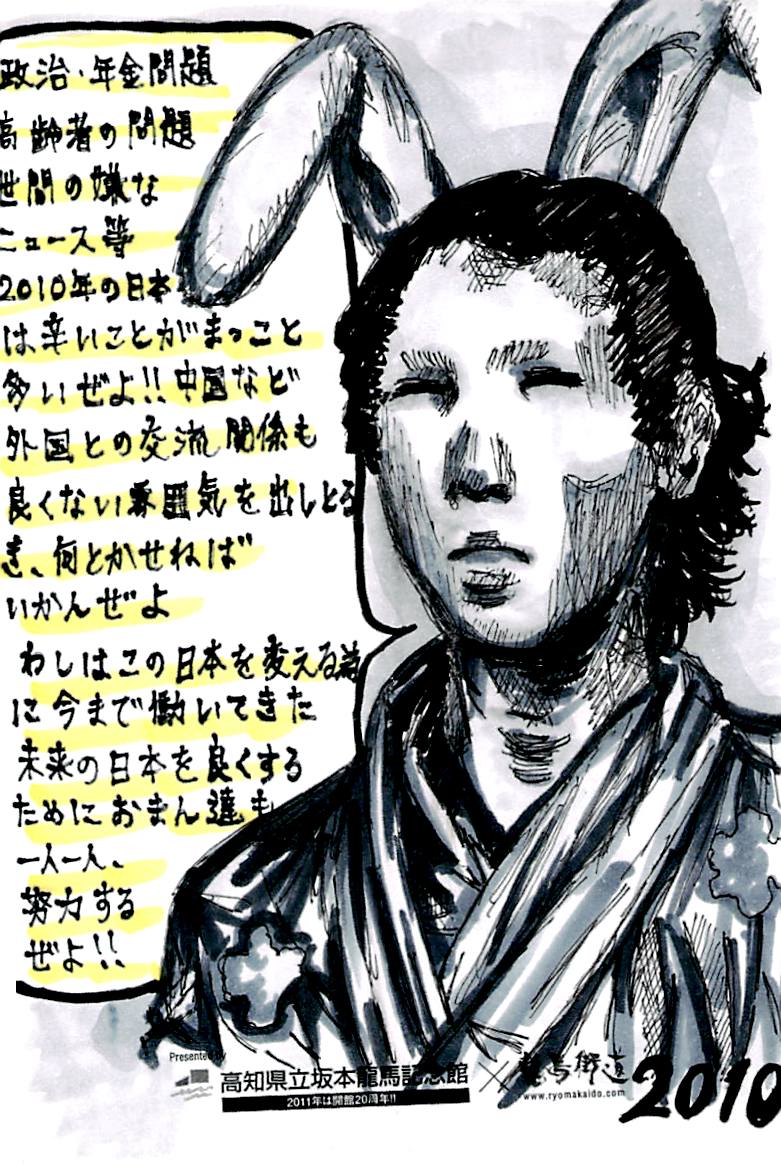 政治・年金問題
高齢者の問題
世間の嫌な
ニュース等
2010年の日本
は辛いことがまっこと
多いぜよ!!中国など
外国との交流関係も
良くない雰囲気を出しとる
き、何とかせねば
いかんぜよ
わしはこの日本を変える為
に今まで働いてきた
未来の日本を良くする
ためにおまん達も
一人一人、
努力する
ぜよ!!
Presented by
高知県立坂本龍馬記念館 × 龍馬街道
2011年は開館20周年!! www.ryomakaido.com
2010